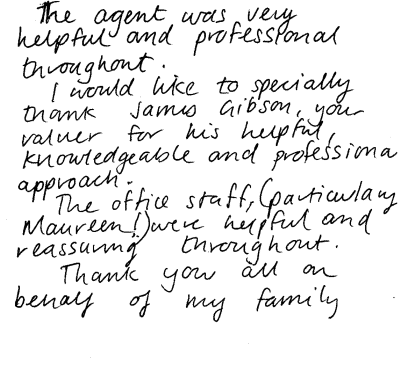 The agent was very
helpful and professional
throughout.
I would like to specially
thank James Gibson, your
valuer for his helpful,
knowledgeable and professiona
approach.
The office staff, (particularly
Maureen!) were helpful and
reassuring throughout.
Thank you all on
behalf of my family